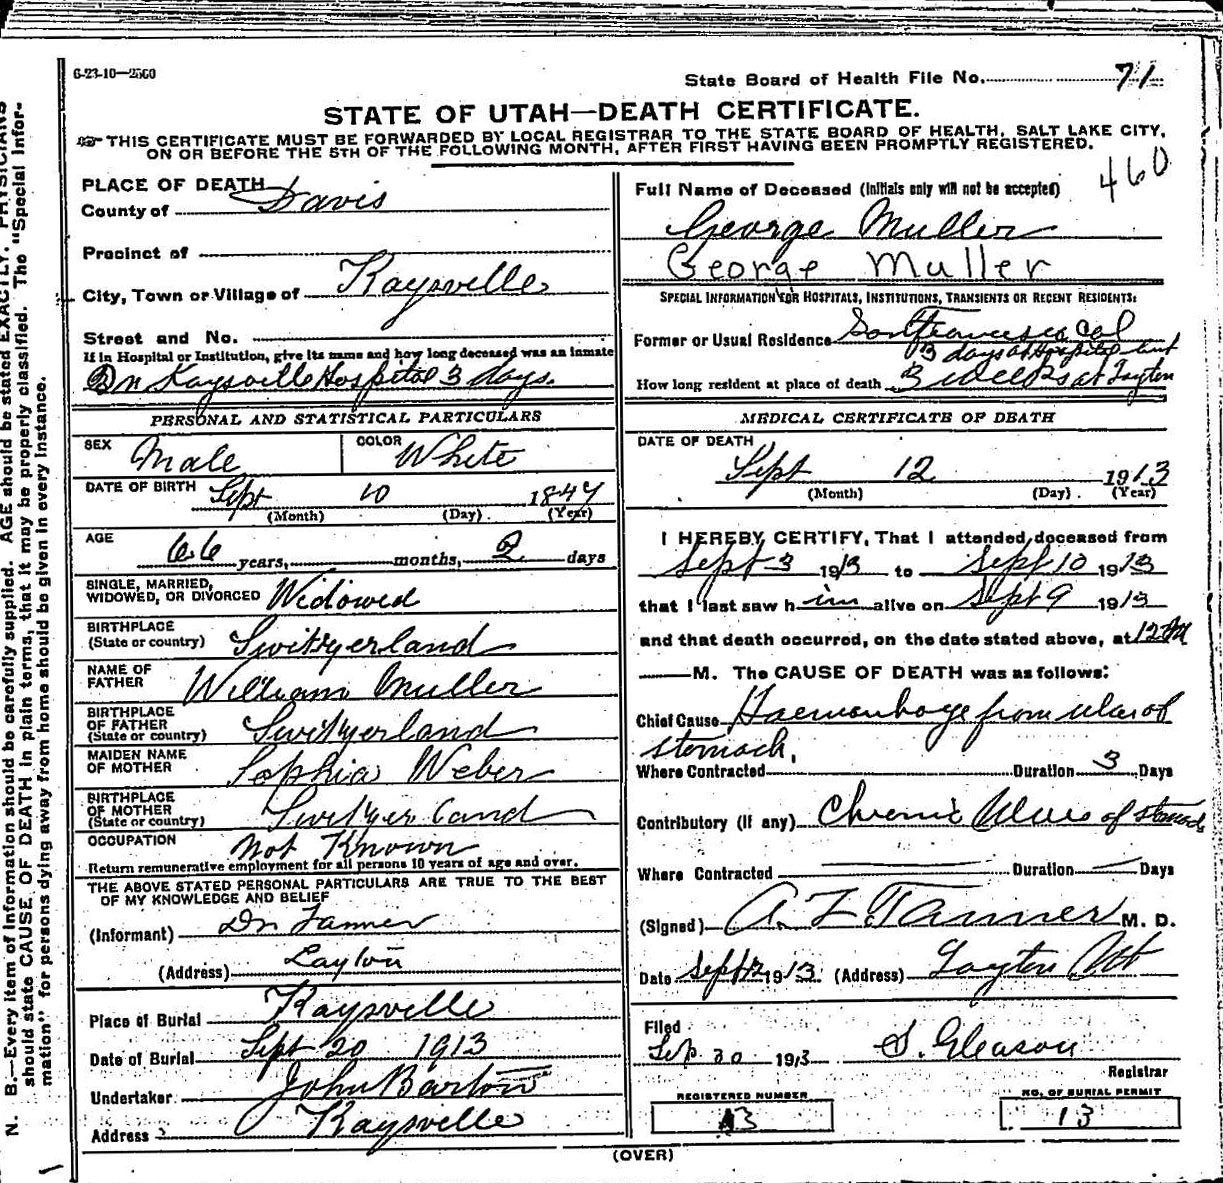 6-23-10—2500
State Board of Health File No. 71
STATE OF UTAH—DEATH CERTIFICATE.
THIS CERTIFICATE MUST BE FORWARDED BY LOCAL REGISTRAR TO THE STATE BOARD OF HEALTH, SALT LAKE CITY,
ON OR BEFORE THE 5TH OF THE FOLLOWING MONTH, AFTER FIRST HAVING BEEN PROMPTLY REGISTERED.
460
PLACE OF DEATH
County of Davis
Precinct of
City, Town or Village of Kaysville
Street and No.
If in Hospital or Institution, give its name and how long deceased was an inmate
In Kaysville Hospital 3 days.
PERSONAL AND STATISTICAL PARTICULARS
SEX Male COLOR White
DATE OF BIRTH Sept 10 1847
(Month) (Day) (Year)
AGE 66 years, months, 2 days
SINGLE, MARRIED,
WIDOWED, OR DIVORCED Widowed
BIRTHPLACE
(State or country) Switzerland
NAME OF
FATHER William Muller
BIRTHPLACE
OF FATHER
(State or country) Switzerland
MAIDEN NAME
OF MOTHER Sophia Weber
BIRTHPLACE
OF MOTHER
(State or country) Switzerland
OCCUPATION Not Known
Return remunerative employment for all persons 10 years of age and over.
THE ABOVE STATED PERSONAL PARTICULARS ARE TRUE TO THE BEST
OF MY KNOWLEDGE AND BELIEF
(Informant) Dr Tanner
(Address) Layton
Place of Burial Kaysville
Date of Burial Sept 20 1913
Undertaker John Barton
Address Kaysville
Full Name of Deceased (Initials only will not be accepted)
George Muller
George Muller
SPECIAL INFORMATION FOR HOSPITALS, INSTITUTIONS, TRANSIENTS OR RECENT RESIDENTS:
Former or Usual Residence San Francisco Cal
3 days at Hospital but
How long resident at place of death 3 weeks at Layton
MEDICAL CERTIFICATE OF DEATH
DATE OF DEATH
Sept 12 1913
(Month) (Day) (Year)
I HEREBY CERTIFY, That I attended deceased from
Sept 3 1913 to Sept 10 1913
that I last saw him alive on Sept 9 1913
and that death occurred, on the date stated above, at 12 M
M. The CAUSE OF DEATH was as follows:
Chief Cause Haemorrhage from ulcer of
stomach,
Where Contracted Duration 3 Days
Contributory (If any) Chronic Ulcer of stomach
Where Contracted Duration — Days
(Signed) A. Z. Tanner M. D.
Date Sept 12 1913 (Address) Layton Ut
Filed
Sep. 20 1913 S. Gleason
Registrar
REGISTERED NUMBER NO. OF BURIAL PERMIT
13 13
(OVER)
N. B.—Every item of information should be carefully supplied. AGE should be stated EXACTLY. PHYSICIANS
should state CAUSE OF DEATH in plain terms, that it may be properly classified. The "Special Infor-
mation" for persons dying away from home should be given in every instance.